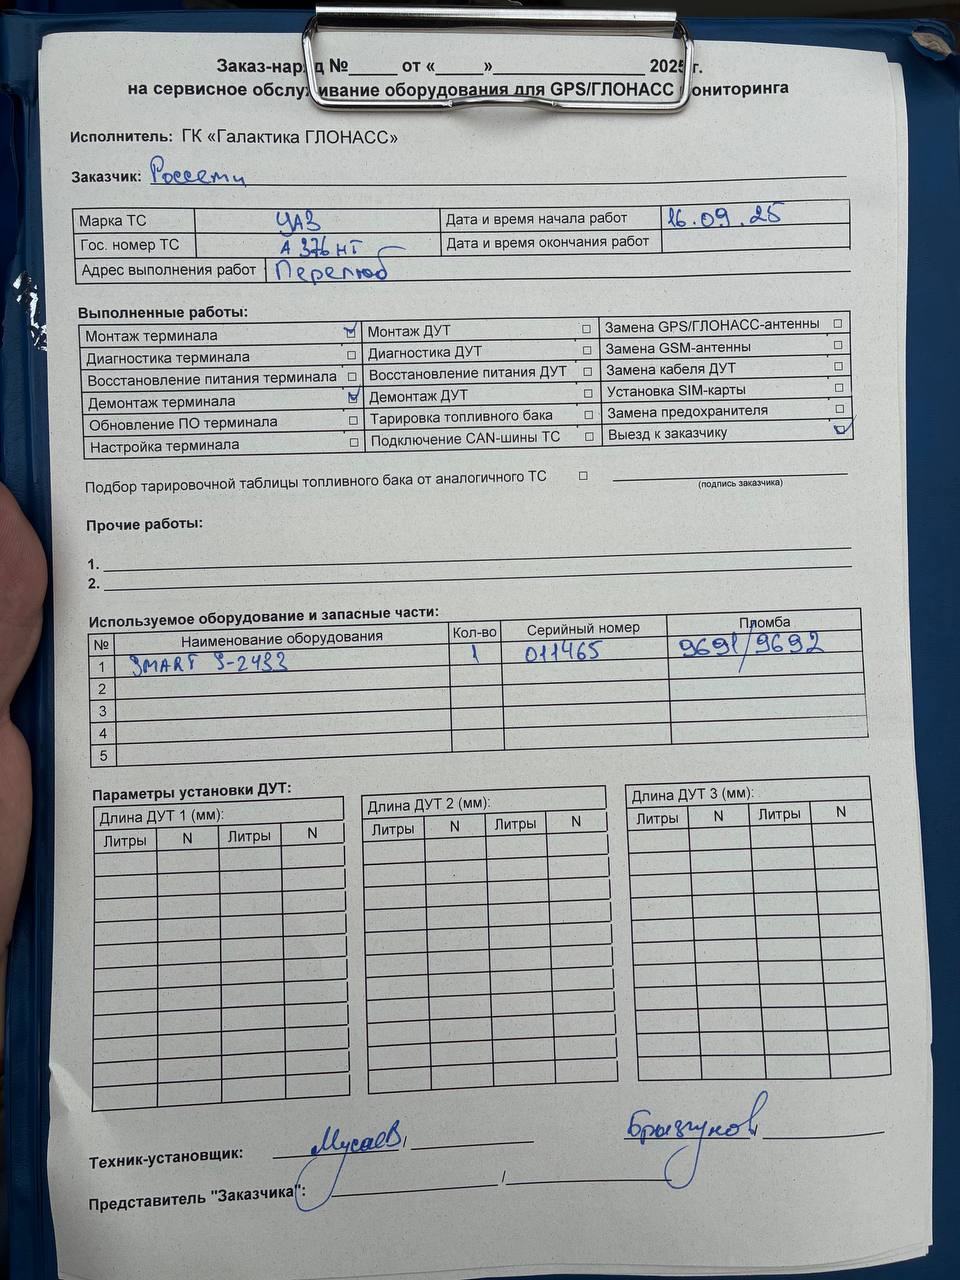 Заказ-наряд №_____ от «_____»________________ 2025 г.
на сервисное обслуживание оборудования для GPS/ГЛОНАСС мониторинга
Исполнитель: ГК «Галактика ГЛОНАСС»
Заказчик: Россети
Марка ТС УАЗ Дата и время начала работ 16.09.25
Гос. номер ТС А 376 НТ Дата и время окончания работ
Адрес выполнения работ Перелюб
Выполненные работы:
Монтаж терминала ☑ Монтаж ДУТ ☐ Замена GPS/ГЛОНАСС-антенны ☐
Диагностика терминала ☐ Диагностика ДУТ ☐ Замена GSM-антенны ☐
Восстановление питания терминала ☐ Восстановление питания ДУТ ☐ Замена кабеля ДУТ ☐
Демонтаж терминала ☑ Демонтаж ДУТ ☐ Установка SIM-карты ☐
Обновление ПО терминала ☐ Тарировка топливного бака ☐ Замена предохранителя ☐
Настройка терминала ☐ Подключение CAN-шины ТС ☐ Выезд к заказчику ☑
Подбор тарировочной таблицы топливного бака от аналогичного ТС ☐
(подпись заказчика)
Прочие работы:
1.
2.
Используемое оборудование и запасные части:
№ Наименование оборудования Кол-во Серийный номер Пломба
1 SMART S-2433 1 011465 9691/9692
2
3
4
5
Параметры установки ДУТ:
Длина ДУТ 1 (мм): Длина ДУТ 2 (мм): Длина ДУТ 3 (мм):
Литры N Литры N Литры N Литры N Литры N Литры N
Техник-установщик: Мусаев / Брызгунов /
Представитель "Заказчика": /